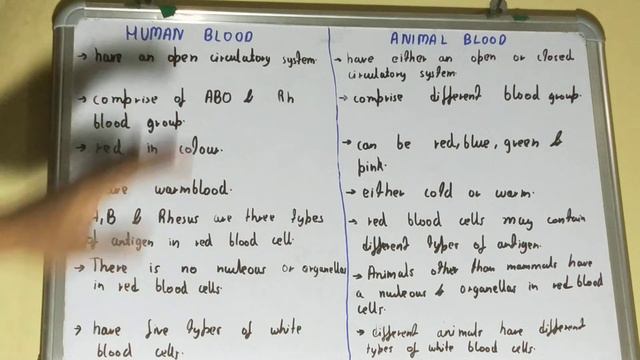 HUMAN BLOOD
→ have an open circulatory system.
→ comprise of ABO & Rh
blood group.
→ red in colour.
warmblood.
A,B & Rhesus are three types
of antigen in red blood cell.
→ There is no nucleous or organelles
in red blood cells.
→ have five types of white
blood cells.
ANIMAL BLOOD
→ have either an open or closed
circulatory system.
→ comprise different blood group.
→ can be red, blue, green &
pink.
→ either cold or warm.
→ red blood cells may contain
different types of antigen.
→ Animals other than mammals have
a nucleous & organelles in red blood
cells.
→ different animals have different
types of white blood cells.